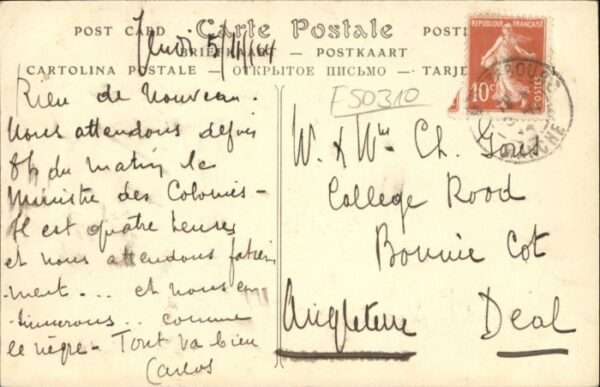 POST CARD Carte Postale
BRIEFKAART — POSTKAART
CARTOLINA POSTALE — ОТКРЫТОЕ ПИСЬМО — TARJE
Jeudi 5/11/14
REPUBLIQUE FRANÇAISE
10c
POSTES
F50310
Rien de nouveau.
Nous attendons depuis
8h du matin le
Ministre des Colonies -
Il est quatre heures
et nous attendons patiem
-ment... et nous con
-tinuerons... comme
le nègre - Tout va bien
Carlos
Ch.
College Road
Cot
Angleterre Deal